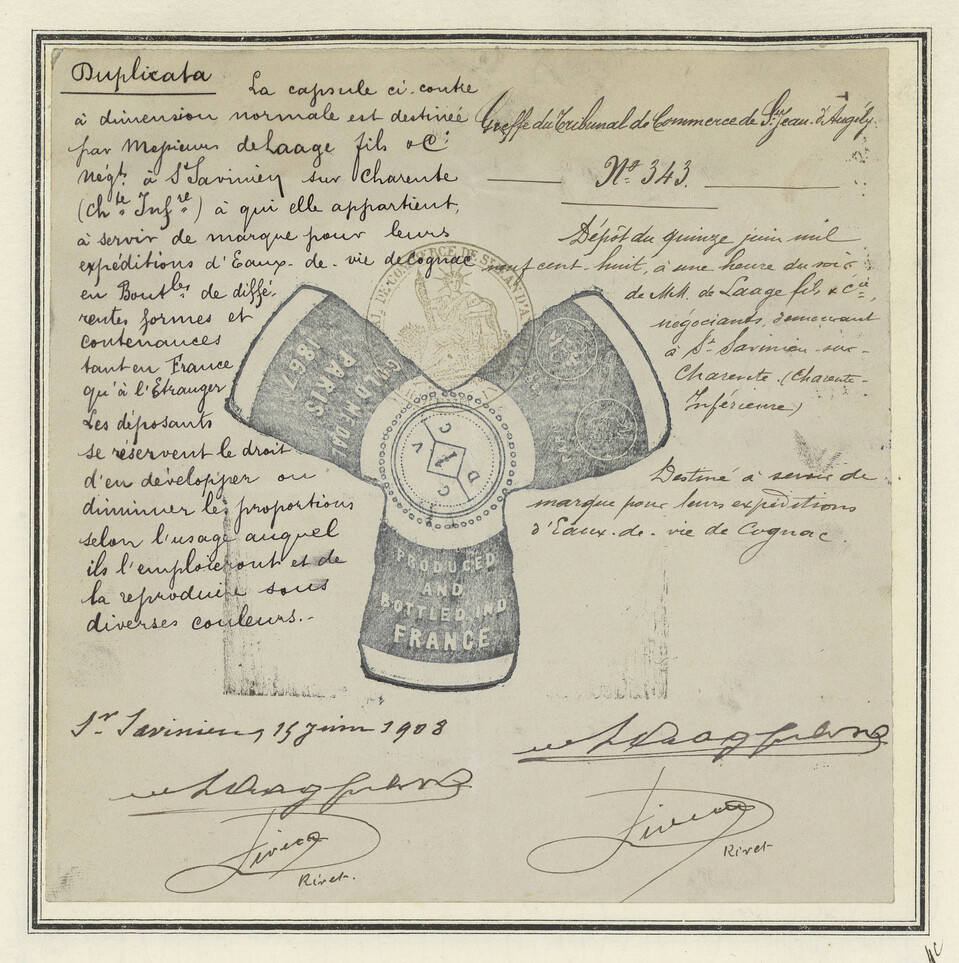 Duplicata
La capsule ci-contre
à dimension normale est destinée
par Messieurs de Laage fils & Cie
Négts à St Savinien sur Charente
(Chte Infre) à qui elle appartient,
à servir de marque pour leurs
expéditions d'Eaux-de-vie de Cognac
en Boutlles de diffé-
rentes formes et
contenances
tant en France
qu'à l'Etranger
Les déposants
se réservent le droit
d'en développer ou
diminuer les proportions
selon l'usage auquel
ils l'emploieront et de
la reproduire sous
diverses couleurs.-
St Savinien, 15 Juin 1908
Rivet.
Greffe du Tribunal de Commerce de St Jean-d'Angély.
No 343.
Dépôt du quinze juin mil
neuf cent-huit, à une heure du soir
de MM. de Laage fils & Cie,
négociants, demeurant
à St Savinien-sur-
Charente-(Charente-
Inférieure)
Destiné à servir de
marque pour leurs expéditions
d'Eaux-de-vie de Cognac.
Rivet
GOLD MEDAL
PARIS
1867
PRODUCED
AND
BOTTLED IND
FRANCE